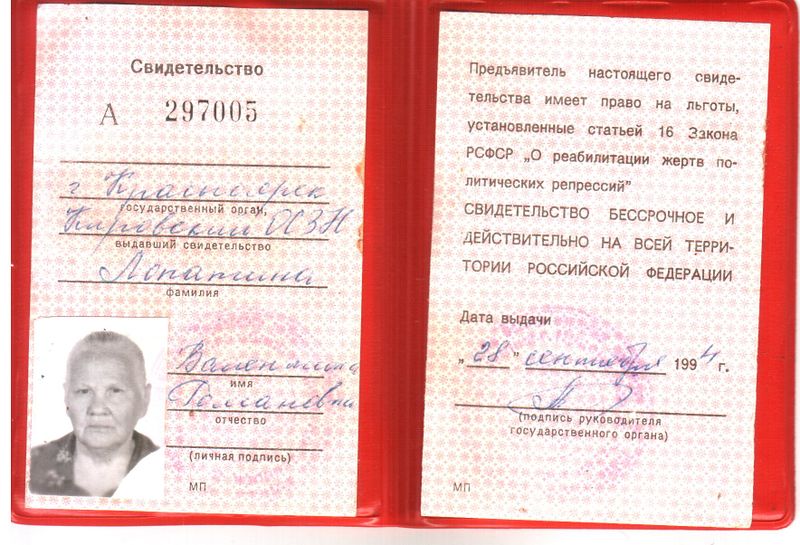 Свидетельство
А 297005
г Красноярск
государственный орган,
Кировский ОСЗН
выдавший свидетельство
Лопатина
фамилия
Валентина
имя
Романовна
отчество
(личная подпись)
МП
Предъявитель настоящего свиде-
тельства имеет право на льготы,
установленные статьей 16 Закона
РСФСР „О реабилитации жертв по-
литических репрессий"
СВИДЕТЕЛЬСТВО БЕССРОЧНОЕ И
ДЕЙСТВИТЕЛЬНО НА ВСЕЙ ТЕРРИ-
ТОРИИ РОССИЙСКОЙ ФЕДЕРАЦИИ
Дата выдачи
„28" сентября 1994 г.
(подпись руководителя
государственного органа)
МП